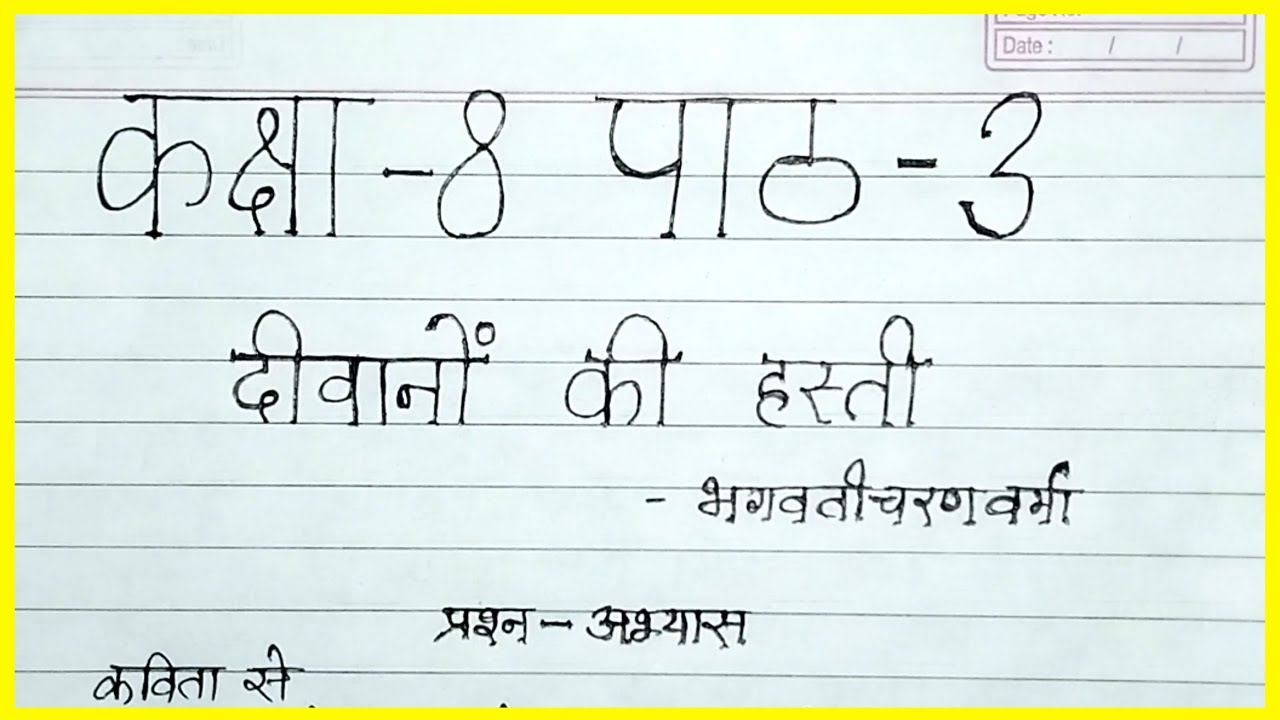 Date : / /
कक्षा - 8 पाठ - 3
दीवानों की हस्ती
- भगवतीचरण वर्मा
प्रश्न - अभ्यास
कविता से